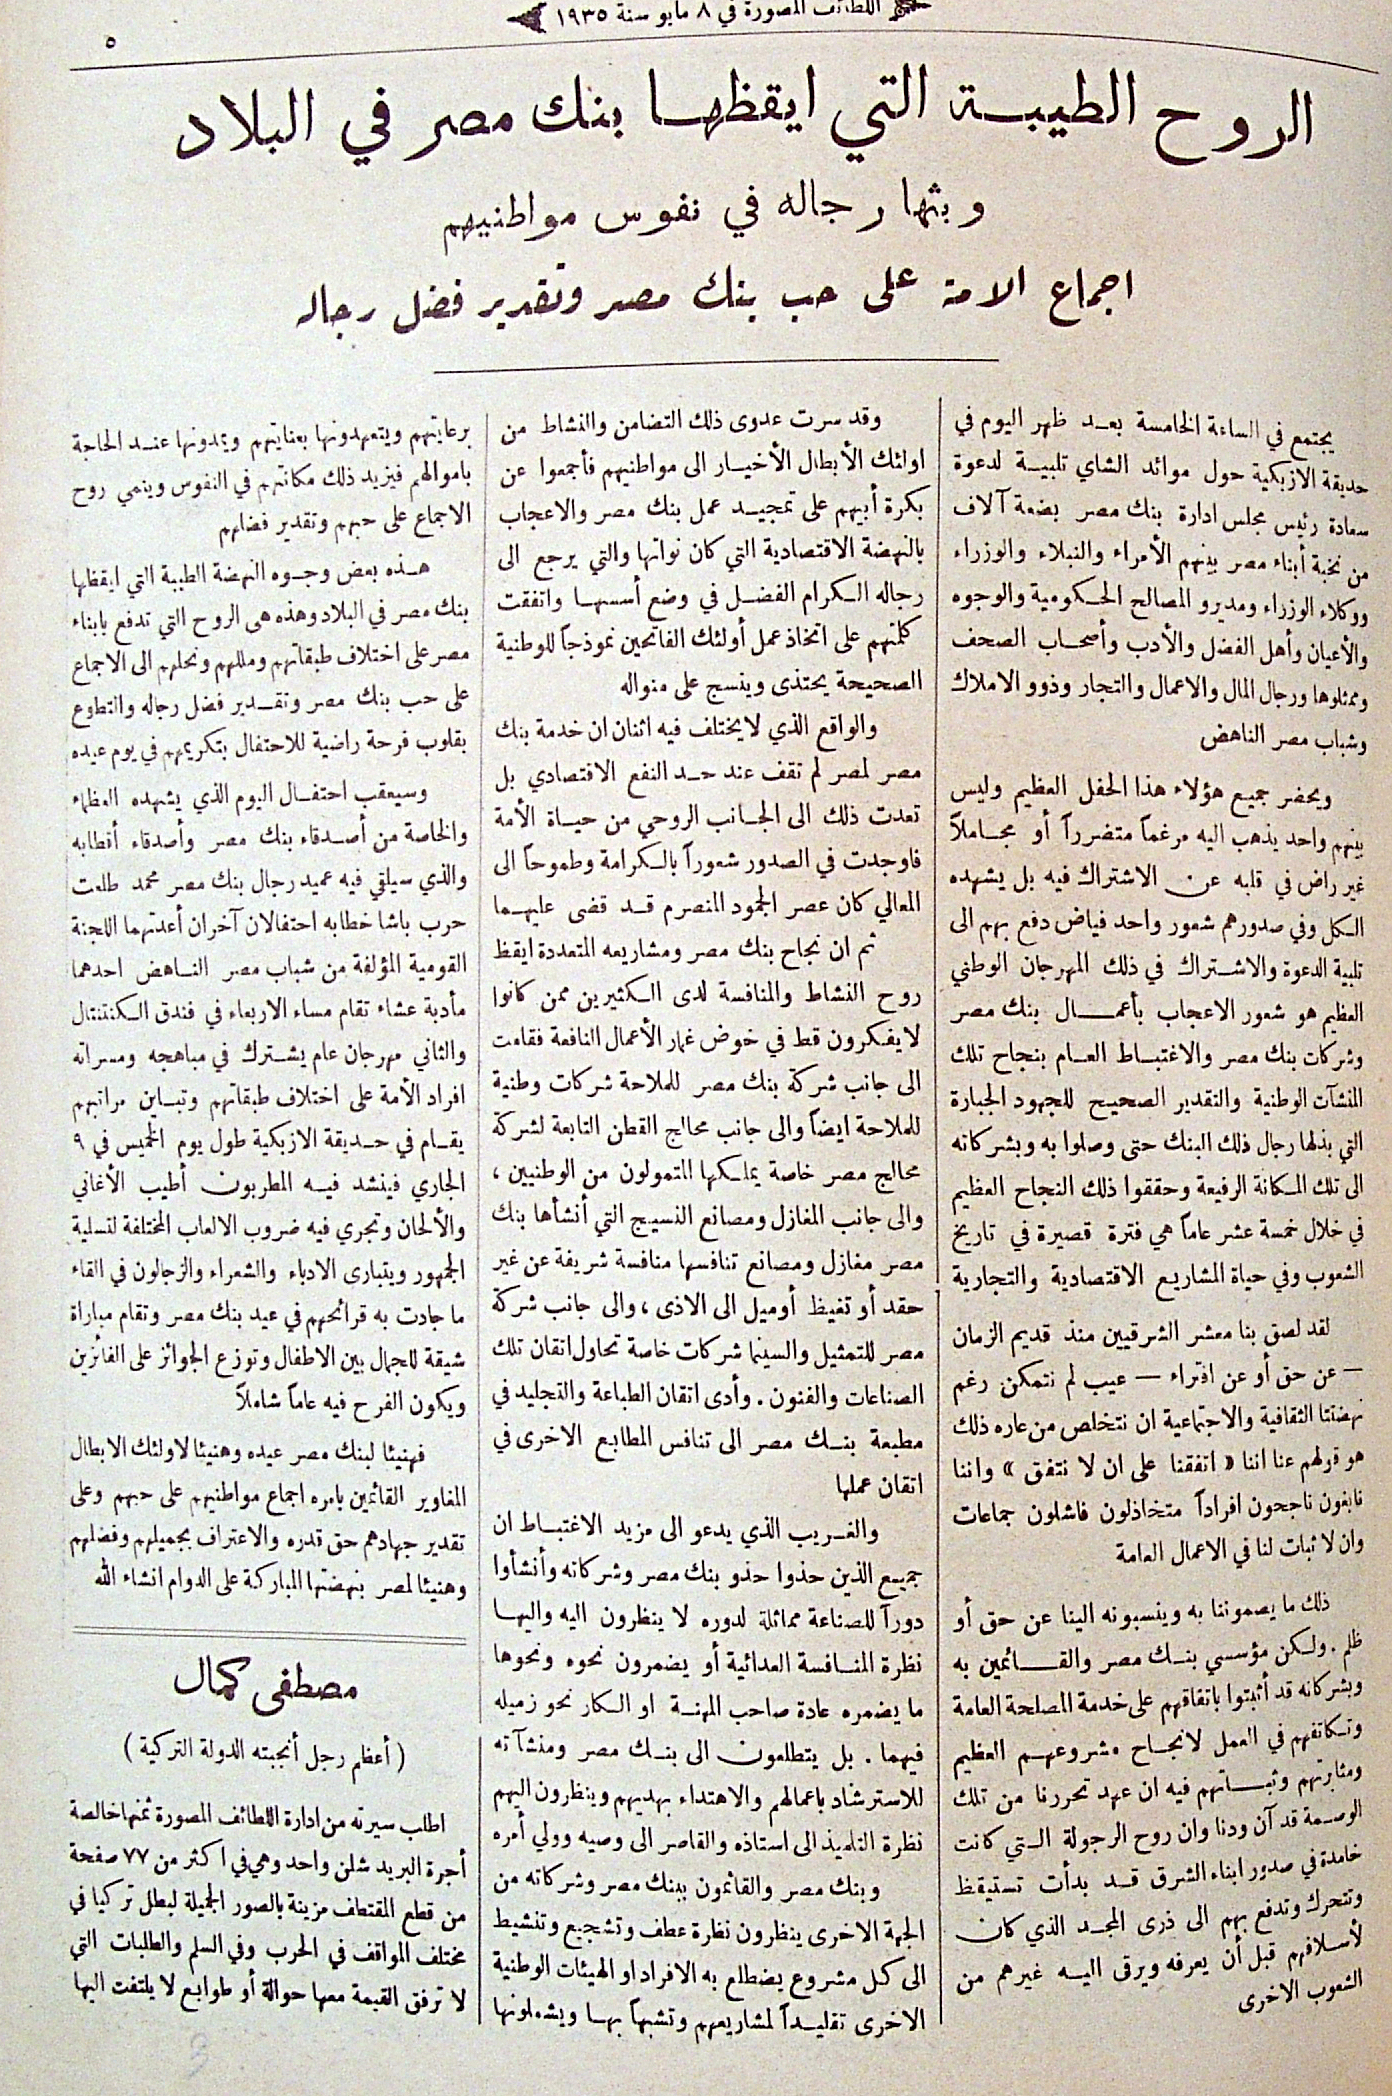 اللطائف المصورة في ٨ مايو سنة ١٩٣٥
٥
الروح الطيبة التي ايقظها بنك مصر في البلاد
وبثها رجاله في نفوس مواطنيهم
اجماع الامة على حب بنك مصر وتقدير فضل رجاله
يجتمع في الساعة الخامسة بعد ظهر اليوم في
حديقة الازبكية حول موائد الشاي تلبية لدعوة
سعادة رئيس مجلس ادارة بنك مصر بضعة آلاف
من نخبة أبناء مصر بينهم الأمراء والنبلاء والوزراء
ووكلاء الوزراء ومديرو المصالح الحكومية والوجوه
والأعيان وأهل الفضل والأدب وأصحاب الصحف
وممثلوها ورجال المال والاعمال والتجار وذوو الاملاك
وشباب مصر الناهض
ويحضر جميع هؤلاء هذا الحفل العظيم وليس
بينهم واحد يذهب اليه مرغماً متضرراً أو مجاملاً
غير راض في قلبه عن الاشتراك فيه بل يشهده
الكل وفي صدورهم شعور واحد فياض دفع بهم الى
تلبية الدعوة والاشتراك في ذلك المهرجان الوطني
العظيم هو شعور الاعجاب بأعمال بنك مصر
وشركات بنك مصر والاغتباط العام بنجاح تلك
المنشآت الوطنية والتقدير الصحيح للجهود الجبارة
التي بذلها رجال ذلك البنك حتى وصلوا به وبشركاته
الى تلك المكانة الرفيعة وحققوا ذلك النجاح العظيم
في خلال خمسة عشر عاماً هي فترة قصيرة في تاريخ
الشعوب وفي حياة المشاريع الاقتصادية والتجارية
لقد لصق بنا معشر الشرقيين منذ قديم الزمان
— عن حق أو عن افتراء — عيب لم نتمكن رغم
نهضتنا الثقافية والاجتماعية ان نتخلص من عاره ذلك
هو قولهم عنا اننا « اتفقنا على ان لا نتفق » واننا
نابغون ناجحون افراداً متخاذلون فاشلون جماعات
وان لا ثبات لنا في الاعمال العامة
ذلك ما يصموننا به وينسبونه الينا عن حق أو
ظلم . ولكن مؤسسي بنك مصر والقائمين به
وبشركاته قد أثبتوا باتفاقهم على خدمة المصلحة العامة
وتكاتفهم في العمل لانجاح مشروعهم العظيم
ومثابرتهم وثباتهم فيه ان عهد تحررنا من تلك
الوصمة قد آن ودنا وان روح الرجولة التي كانت
خامدة في صدور ابناء الشرق قد بدأت تستيقظ
وتتحرك وتدفع بهم الى ذرى المجد الذي كان
لأسلافهم قبل أن يعرفه ويرقى اليه غيرهم من
الشعوب الاخرى
وقد سرت عدوى ذلك التضامن والنشاط من
اولئك الأبطال الأخيار الى مواطنيهم فأجمعوا عن
بكرة أبيهم على تمجيد عمل بنك مصر والاعجاب
بالنهضة الاقتصادية التي كان نواتها والتي يرجع الى
رجاله الكرام الفضل في وضع أسسها واتفقت
كلمتهم على اتخاذ عمل أولئك الفاتحين نموذجاً للوطنية
الصحيحة يحتذى وينسج على منواله
والواقع الذي لا يختلف فيه اثنان ان خدمة بنك
مصر لمصر لم تقف عند حد النفع الاقتصادي بل
تعدت ذلك الى الجانب الروحي من حياة الأمة
فاوجدت في الصدور شعوراً بالكرامة وطموحاً الى
المعالي كان عصر الجمود المنصرم قد قضى عليهما
ثم ان نجاح بنك مصر ومشاريعه المتعددة ايقظ
روح النشاط والمنافسة لدى الكثيرين ممن كانوا
لا يفكرون قط في خوض غمار الأعمال النافعة فقامت
الى جانب شركة بنك مصر للملاحة شركات وطنية
للملاحة ايضاً والى جانب محالج القطن التابعة لشركة
محالج مصر خاصة يملكها المتمولون من الوطنيين ،
والى جانب المغازل ومصانع النسيج التي أنشأها بنك
مصر مغازل ومصانع تنافسها منافسة شريفة عن غير
حقد أو تغيظ أو ميل الى الاذى ، والى جانب شركة
مصر للتمثيل والسينما شركات خاصة تحاول اتقان تلك
الصناعات والفنون . وأدى اتقان الطباعة والتجليد في
مطبعة بنك مصر الى تنافس المطابع الاخرى في
اتقان عملها
والغريب الذي يدعو الى مزيد الاغتباط ان
جميع الذين حذوا حذو بنك مصر وشركاته وأنشأوا
دوراً للصناعة مماثلة لدوره لا ينظرون اليه واليها
نظرة المنافسة العدائية أو يضمرون نحوه ونحوها
ما يضمره عادة صاحب المهنة او الكار نحو زميله
فيهما . بل يتطلعون الى بنك مصر ومنشآته
للاسترشاد باعمالهم والاهتداء بهديهم وينظرون اليهم
نظرة التلميذ الى استاذه والقاصر الى وصيه وولي أمره
وبنك مصر والقائمون ببنك مصر وشركاته من
الجهة الاخرى ينظرون نظرة عطف وتشجيع وتنشيط
الى كل مشروع يضطلع به الافراد او الهيئات الوطنية
الاخرى تقليداً لمشاريعهم وتشبهاً بها ويشملونها
برعايتهم ويتعهدونها بعنايتهم ويمدونها عند الحاجة
باموالهم فيزيد ذلك مكانتهم في النفوس وينمي روح
الاجماع على حبهم وتقدير فضلهم
هذه بعض وجوه النهضة الطيبة التي ايقظها
بنك مصر في البلاد وهذه هي الروح التي تدفع بابناء
مصر على اختلاف طبقاتهم ومللهم ونحلهم الى الاجماع
على حب بنك مصر وتقدير فضل رجاله والتطوع
بقلوب فرحة راضية للاحتفال بتكريمهم في يوم عيده
وسيعقب احتفال اليوم الذي يشهده العظماء
والخاصة من أصدقاء بنك مصر وأصدقاء أقطابه
والذي سيلقي فيه عميد رجال بنك مصر محمد طلعت
حرب باشا خطابه احتفالان آخران أعدتهما اللجنة
القومية المؤلفة من شباب مصر الناهض احدهما
مأدبة عشاء تقام مساء الاربعاء في فندق الكنتننتال
والثاني مهرجان عام يشترك في مباهجه ومسراته
افراد الأمة على اختلاف طبقاتهم وتباين مراتبهم
يقام في حديقة الازبكية طول يوم الخميس في ٩
الجاري فينشد فيه المطربون أطيب الأغاني
والألحان وتجري فيه ضروب الالعاب المختلفة لتسلية
الجمهور ويتبارى الادباء والشعراء والزجالون في القاء
ما جادت به قرائحهم في عيد بنك مصر وتقام مباراة
شيقة للجمال بين الاطفال وتوزع الجوائز على الفائزين
ويكون الفرح فيه عاماً شاملاً
فهنيئا لبنك مصر عيده وهنيئا لاولئك الابطال
المغاوير القائمين بامره اجماع مواطنيهم على حبهم وعلى
تقدير جهادهم حق قدره والاعتراف بجميلهم وفضلهم
وهنيئا لمصر بنهضتها المباركة على الدوام انشاء الله
مصطفى كمال
( أعظم رجل أنجبته الدولة التركية )
اطلب سيرته من ادارة اللطائف المصورة ثمنها خالصة
أجرة البريد شلن واحد وهي في اكثر من ٧٧ صفحة
من قطع المقتطف مزينة بالصور الجميلة لبطل تركيا في
مختلف المواقف في الحرب وفي السلم والطلبات التي
لا ترفق القيمة معها حوالة أو طوابع لا يلتفت اليها